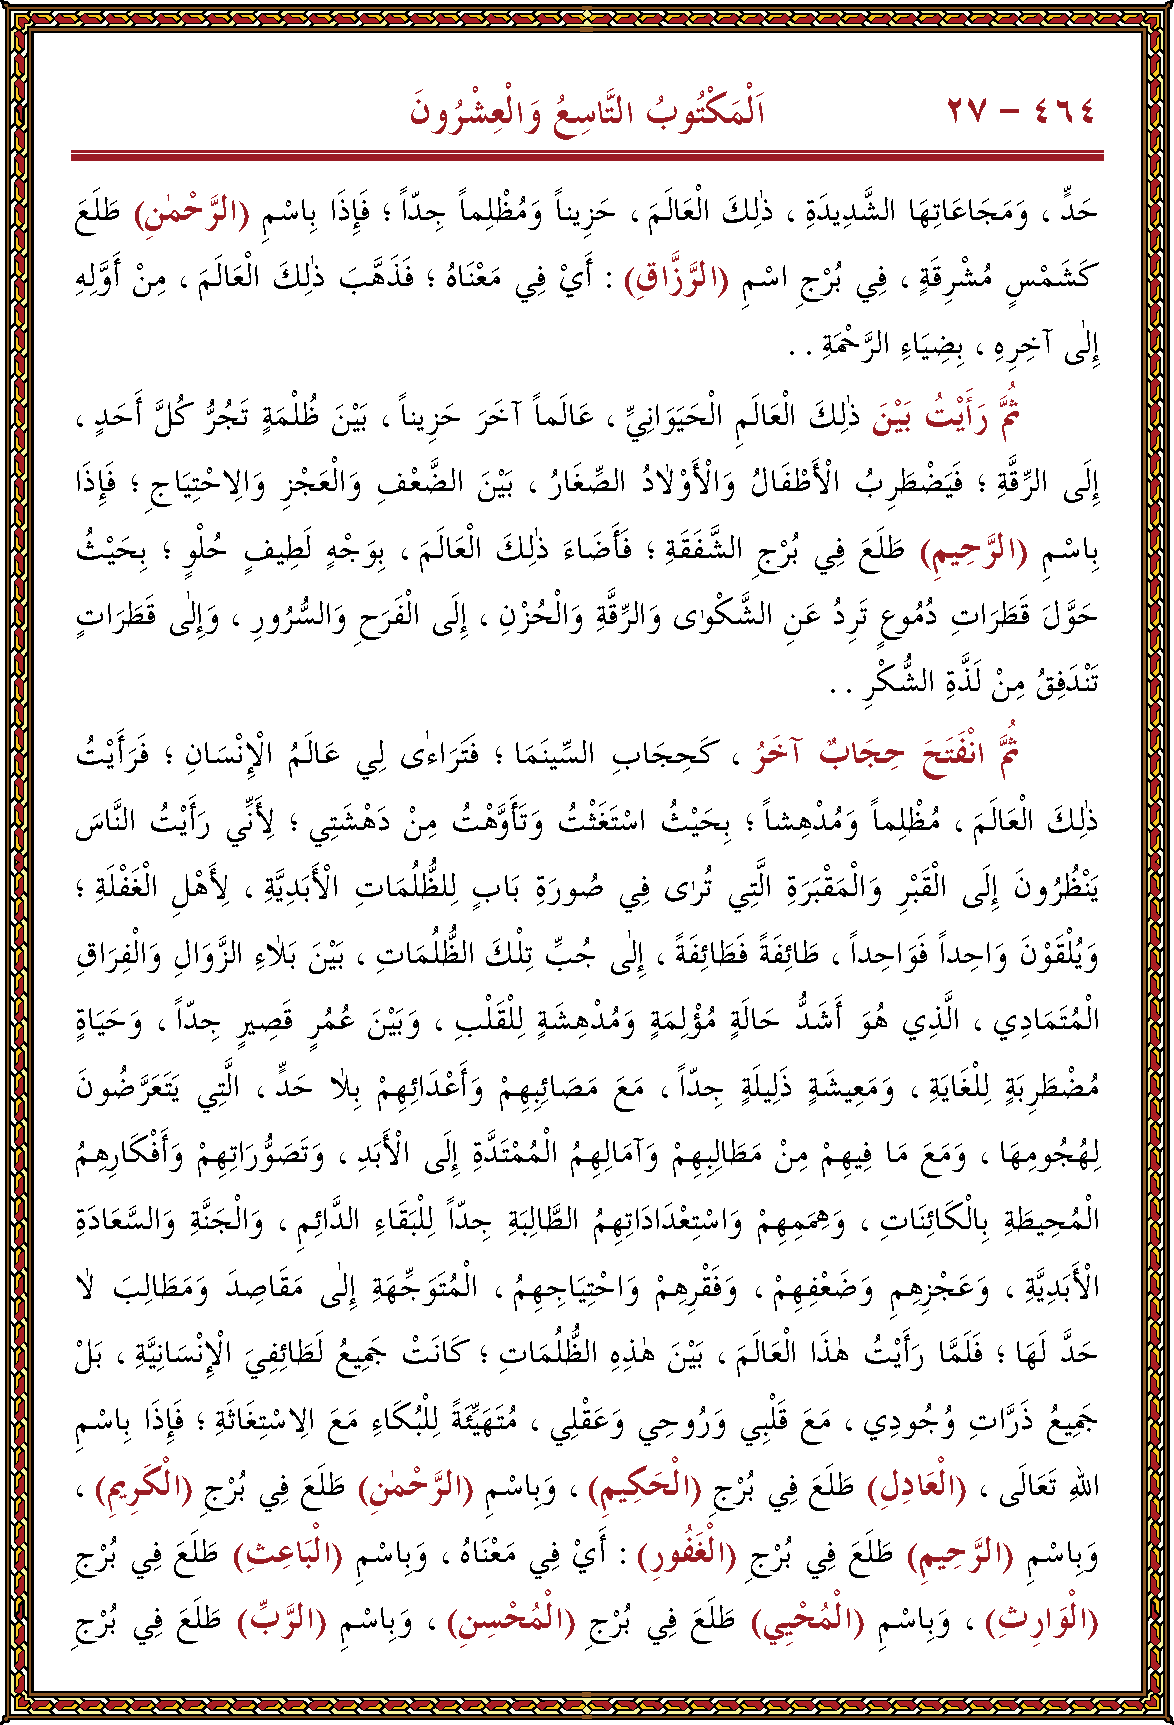 ٤٦٤ - ٢٧ اَلْمَكْتُوبُ التَّاسِعُ وَالْعِشْرُونَ
حَدٍّ ، وَمَجَاعَاتِهَا الشَّدِيدَةِ ، ذٰلِكَ الْعَالَمَ ، حَزِيناً وَمُظْلِماً جِدّاً ؛ فَإِذَا بِاسْمِ (الرَّحْمٰنِ) طَلَعَ
كَشَمْسٍ مُشْرِقَةٍ ، فِي بُرْجِ اسْمِ (الرَّزَّاقِ) : أَيْ فِي مَعْنَاهُ ؛ فَذَهَّبَ ذٰلِكَ الْعَالَمَ ، مِنْ أَوَّلِهِ
إِلٰى آخِرِهِ ، بِضِيَاءِ الرَّحْمَةِ . .
ثُمَّ رَأَيْتُ بَيْنَ ذٰلِكَ الْعَالَمِ الْحَيَوَانِيِّ ، عَالَماً آخَرَ حَزِيناً ، بَيْنَ ظُلْمَةٍ تَجُرُّ كُلَّ أَحَدٍ ،
إِلَى الرِّقَّةِ ؛ فَيَضْطَرِبُ الْأَطْفَالُ وَالْأَوْلَادُ الصِّغَارُ ، بَيْنَ الضَّعْفِ وَالْعَجْزِ وَالِاحْتِيَاجِ ؛ فَإِذَا
بِاسْمِ (الرَّحِيمِ) طَلَعَ فِي بُرْجِ الشَّفَقَةِ ؛ فَأَضَاءَ ذٰلِكَ الْعَالَمَ ، بِوَجْهٍ لَطِيفٍ حُلْوٍ ؛ بِحَيْثُ
حَوَّلَ قَطَرَاتِ دُمُوعٍ تَرِدُ عَنِ الشَّكْوٰى وَالرِّقَّةِ وَالْحُزْنِ ، إِلَى الْفَرَحِ وَالسُّرُورِ ، وَإِلٰى قَطَرَاتٍ
تَنْدَفِقُ مِنْ لَذَّةِ الشُّكْرِ . .
ثُمَّ انْفَتَحَ حِجَابٌ آخَرُ ، كَحِجَابِ السِّينَمَا ؛ فَتَرَاءٰى لِي عَالَمُ الْإِنْسَانِ ؛ فَرَأَيْتُ
ذٰلِكَ الْعَالَمَ ، مُظْلِماً وَمُدْهِشاً ؛ بِحَيْثُ اسْتَغَثْتُ وَتَأَوَّهْتُ مِنْ دَهْشَتِي ؛ لِأَنِّي رَأَيْتُ النَّاسَ
يَنْظُرُونَ إِلَى الْقَبْرِ وَالْمَقْبَرَةِ الَّتِي تُرٰى فِي صُورَةِ بَابٍ لِلظُّلُمَاتِ الْأَبَدِيَّةِ ، لِأَهْلِ الْغَفْلَةِ ؛
وَيُلْقَوْنَ وَاحِداً فَوَاحِداً ، طَائِفَةً فَطَائِفَةً ، إِلٰى جُبِّ تِلْكَ الظُّلُمَاتِ ، بَيْنَ بَلَاءِ الزَّوَالِ وَالْفِرَاقِ
الْمُتَمَادِي ، الَّذِي هُوَ أَشَدُّ حَالَةٍ مُؤْلِمَةٍ وَمُدْهِشَةٍ لِلْقَلْبِ ، وَبَيْنَ عُمُرٍ قَصِيرٍ جِدّاً ، وَحَيَاةٍ
مُضْطَرِبَةٍ لِلْغَايَةِ ، وَمَعِيشَةٍ ذَلِيلَةٍ جِدّاً ، مَعَ مَصَائِبِهِمْ وَأَعْدَائِهِمْ بِلَا حَدٍّ ، الَّتِي يَتَعَرَّضُونَ
لِهُجُومِهَا ، وَمَعَ مَا فِيهِمْ مِنْ مَطَالِبِهِمْ وَآمَالِهِمُ الْمُمْتَدَّةِ إِلَى الْأَبَدِ ، وَتَصَوُّرَاتِهِمْ وَأَفْكَارِهِمُ
الْمُحِيطَةِ بِالْكَائِنَاتِ ، وَهِمَمِهِمْ وَاسْتِعْدَادَاتِهِمُ الطَّالِبَةِ جِدّاً لِلْبَقَاءِ الدَّائِمِ ، وَالْجَنَّةِ وَالسَّعَادَةِ
الْأَبَدِيَّةِ ، وَعَجْزِهِمِ وَضَعْفِهِمْ ، وَفَقْرِهِمْ وَاحْتِيَاجِهِمُ ، الْمُتَوَجِّهَةِ إِلٰى مَقَاصِدَ وَمَطَالِبَ لَا
حَدَّ لَهَا ؛ فَلَمَّا رَأَيْتُ هٰذَا الْعَالَمَ ، بَيْنَ هٰذِهِ الظُّلُمَاتِ ؛ كَانَتْ جَمِيعُ لَطَائِفِيَ الْإِنْسَانِيَّةِ ، بَلْ
جَمِيعُ ذَرَّاتِ وُجُودِي ، مَعَ قَلْبِي وَرُوحِي وَعَقْلِي ، مُتَهَيِّئَةً لِلْبُكَاءِ مَعَ الِاسْتِغَاثَةِ ؛ فَإِذَا بِاسْمِ
اللهِ تَعَالَى ، (الْعَادِلِ) طَلَعَ فِي بُرْجِ (الْحَكِيمِ) ، وَبِاسْمِ (الرَّحْمٰنِ) طَلَعَ فِي بُرْجِ (الْكَرِيمِ) ،
وَبِاسْمِ (الرَّحِيمِ) طَلَعَ فِي بُرْجِ (الْغَفُورِ) : أَيْ فِي مَعْنَاهُ ، وَبِاسْمِ (الْبَاعِثِ) طَلَعَ فِي بُرْجِ
(الْوَارِثِ) ، وَبِاسْمِ (الْمُحْيِي) طَلَعَ فِي بُرْجِ (الْمُحْسِنِ) ، وَبِاسْمِ (الرَّبِّ) طَلَعَ فِي بُرْجِ